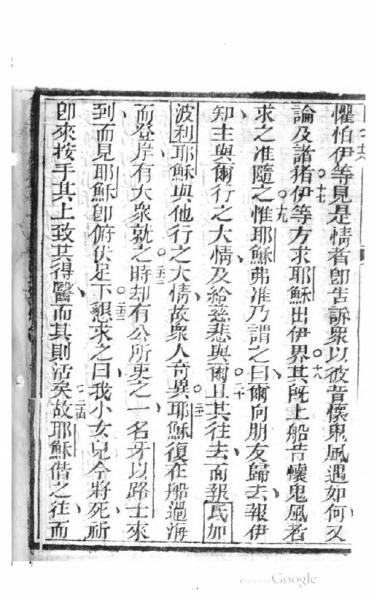 懼怕伊等見是情者卽告訴眾以彼昔懷鬼風遇如何又
論及諸猪○十七伊等方求耶穌出伊界○十八其旣上船昔懷鬼風者
求之准隨之○十九惟耶穌弗准乃謂之曰爾向朋友歸去報伊
知主與爾行之大情及給慈悲與爾○二十且其往去而報民加
波利耶穌與他行之大情故眾人奇異○二一耶穌復在船過海
而登岸有大眾就之○二二時却有公所吏之一名牙以路士來
到而見耶穌卽俯伏足下○二三懇求之曰我小女兒今將死祈
卽來按手其上致其得醫而其則活矣○二四故耶穌偕之往而
Google